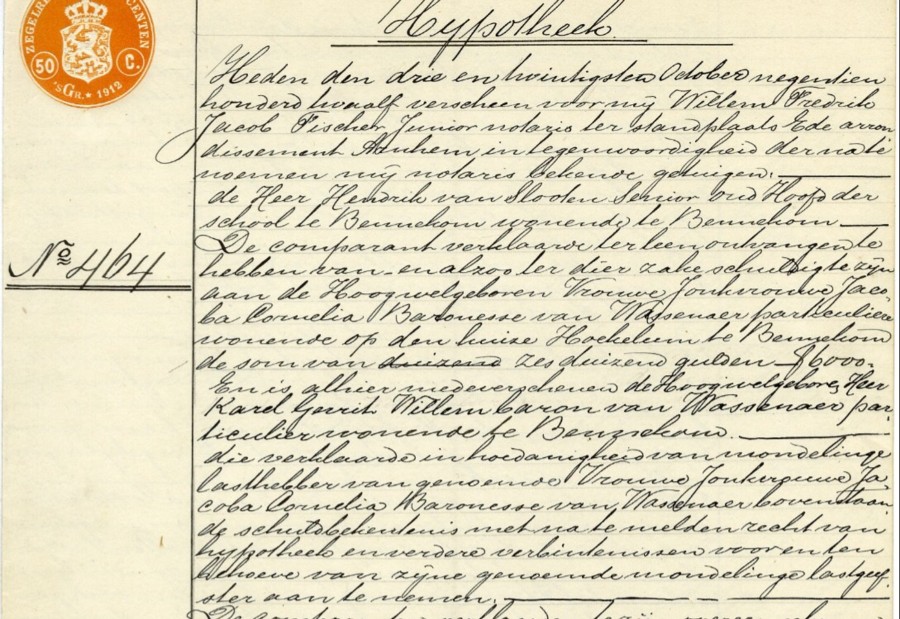 ZEGELRE
CENTEN
50 C.
'sGR. * 1912
Hypotheek.
Heden den drie en twintigsten October negentien
honderd twaalf verscheen voor mij Willem Fredrik
Jacob Fischer Junior notaris ter standplaats Ede arron
dissement Arnhem, in tegenwoordigheid der na te
noemen mij notaris bekende getuigen.
de Heer Hendrik van Slooten Senior oud Hoofd der
school te Bennekom wonende te Bennekom
De comparant verklaarde ter leen ontvangen te
hebben van en alzoo ter dier zake schuldig te zijn
No 464
aan de Hoogwelgeboren Vrouwe Jonkvrouwe Jaco-
ba Cornelia Baronesse van Wassenaer particuliere
wonende op den huize Hoekelum te Bennekom
de som van duizend zesduizend gulden f 6000.
En is alhier medeverschenen de Hoogwelgeboren Heer
Karel Gerrit Willem baron van Wassenaer par-
ticulier wonende te Bennekom.
die verklaarde in hoedanigheid van mondelinge
lasthebber van genoemde Vrouwe Jonkvrouwe Ja-
coba Cornelia Baronesse van Wassenaer bovenstaan-
de schuldbekentenis met na te melden recht van
hypotheek en verdere verbintenissen voor en ten
behoeve van zijne genoemde mondelinge lastgeef-
ster aan te nemen.